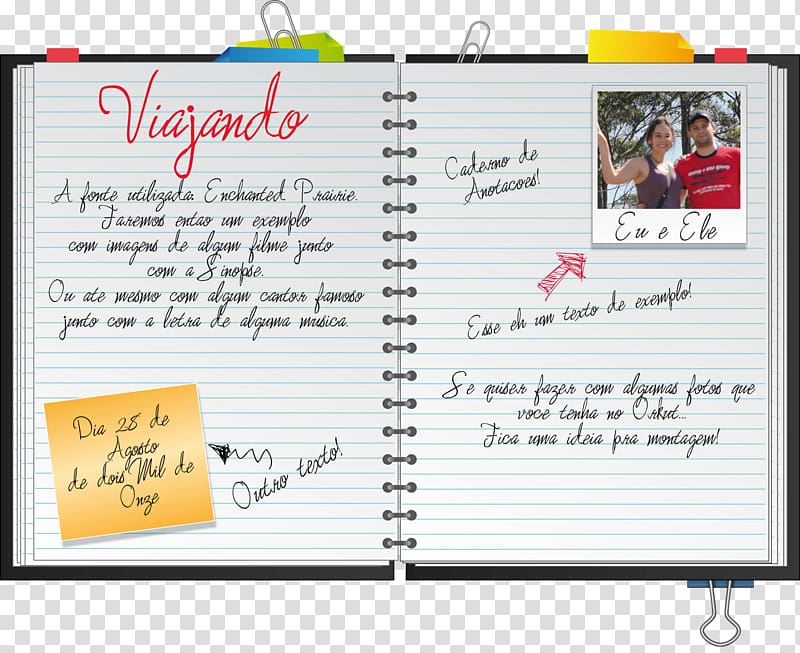 Viajando
A fonte utilizada: Enchanted Prairie.
Faremos entao um exemplo
com imagens de algum filme junto
com a Sinopse.
Ou ate mesmo com algum cantor famoso
junto com a letra de alguma musica.
Dia 28 de
Agosto
de dois Mil de
Onze
Outro texto!
Caderno de
Anotacoes!
Eu e Ele
Esse eh um texto de exemplo!
Se quiser fazer com algumas fotos que
voce tenha no Orkut...
Fica uma ideia pra montagem!